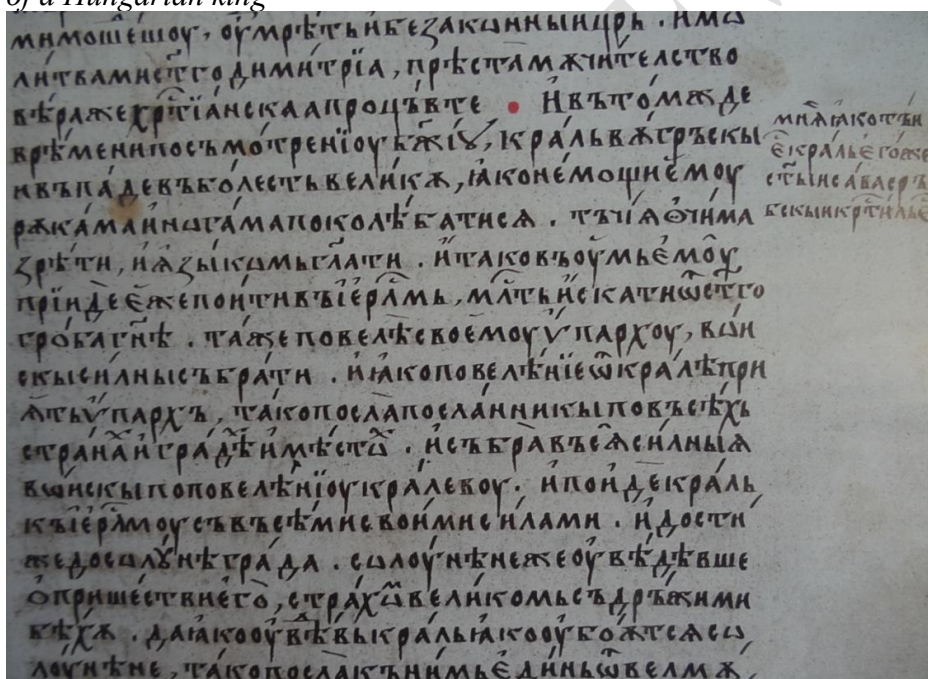 of a Hungarian king
мимошешоу, оумрѣтьи беꙁаконныи цр҃ь. и мѡ
литвами ст҃го димитрїа, прѣста мѫчителство
вѣра же хрⷭ҇тїанскаа процъвте • И въ томже де
врѣмени по съмотренїоу бж҃їю, краль вѫгръскы
и въпаде въ болесть великѫ, ꙗко не мощи емоу
рѫкама и ногама поколѣбатисѧ. тъчїѧ очима
ꙁрѣти, и ѧꙁыкѡмь гл҃ати. и тако въ оумь емоу
прїиде еже поити въ їерⷭ҇лмь, млⷭ҇ть искати ѿ ст҃го
гроба гн҃ѣ. таже повелѣ своемоу ѵпархоу, вѡи
скы силны събрати. и ꙗко повелѣнїе ѿ кралѣ при
ѧть ѵпархъ, тако посла посланникы по въсѣхь
странаⷯ и градѣⷯ и мѣстоⷯ. и събра въсѧ силныѧ
вѡискы по повелѣнїоу кралевоу. и поиде краль
къ їерⷭ҇лмоу съ въсѣми своими силами. и дости
же до солꙋнѣ града. солоунѣне же оувѣдѣвше
о пришествии его, страхѡⷨ великомь съдръжими
бѣхѫ. да ꙗко оувѣⷣ вь краль ꙗко оубоѫтсѧ сѡ
лоунѣне, тако посла къ нимь единь ѿ велмѫ,
мнѧⷯ ꙗко тъи
е краль егоже
ст҃ыи сава сръ
бскыи крⷭ҇ти